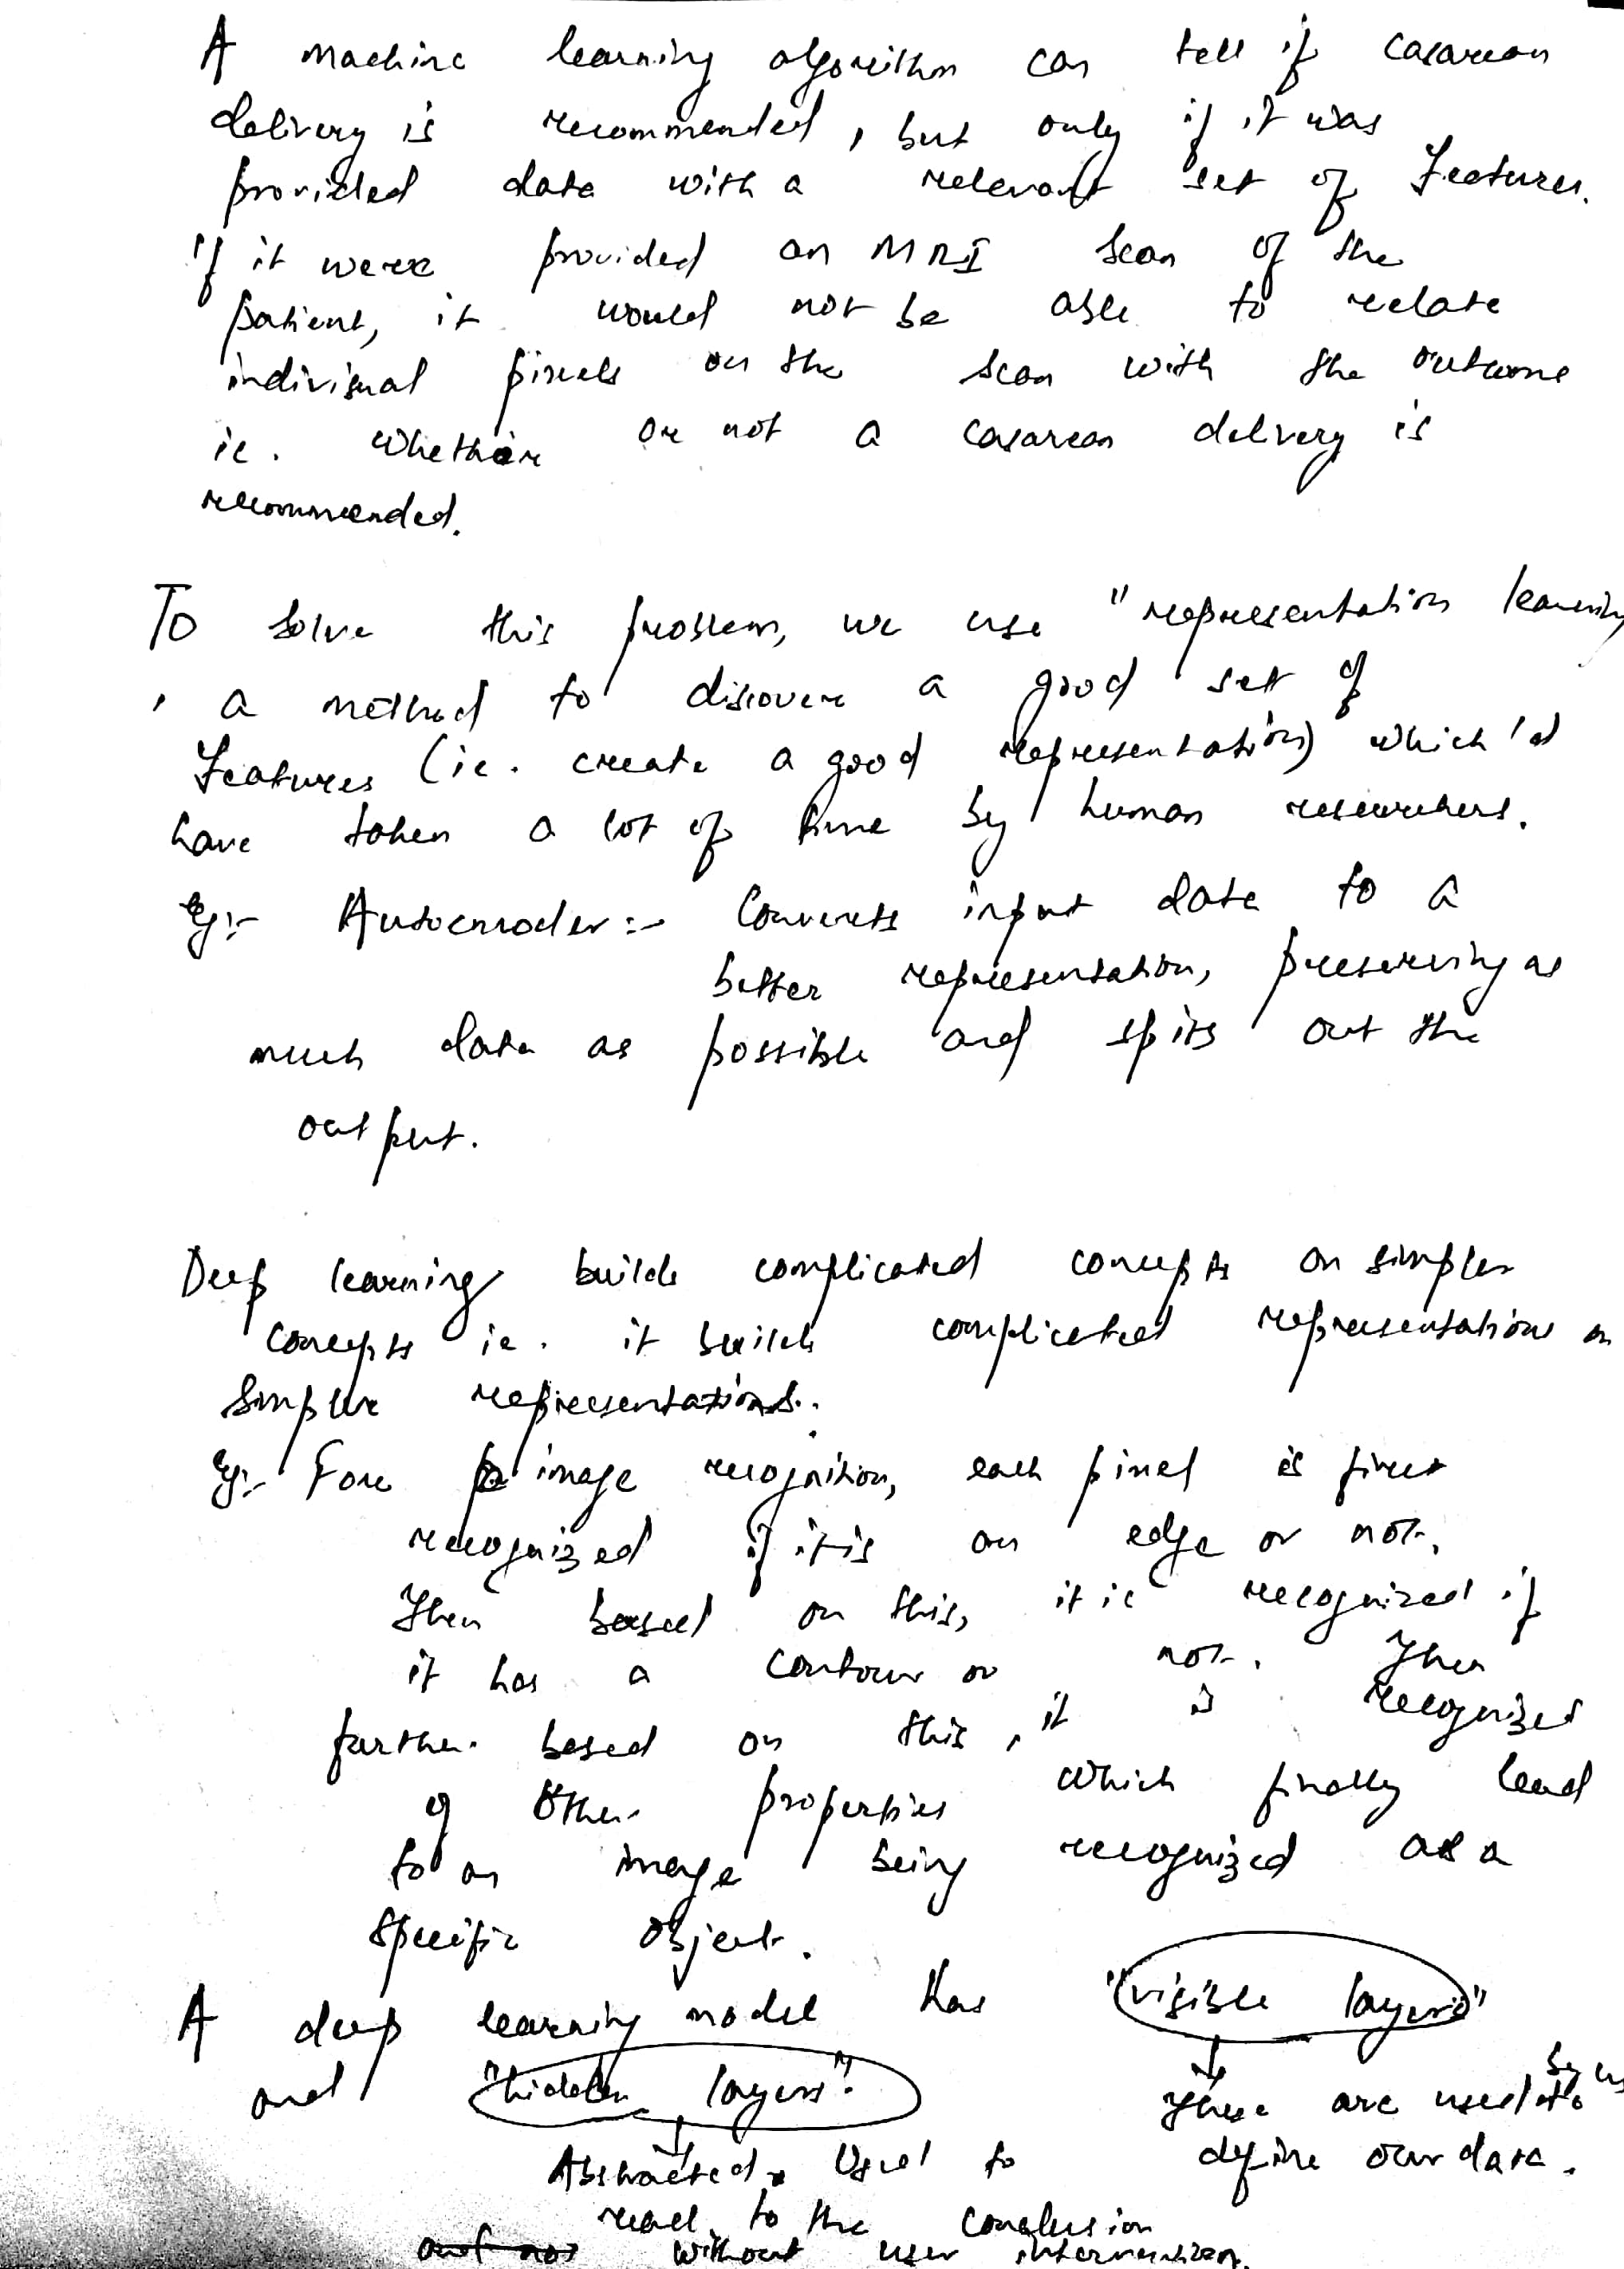 A machine learning algorithm can tell if casarean
delivery is recommended, but only if it was
provided data with a relevant set of features.
If it were provided an MRI scan of the
patient, it would not be able to relate
indivisual pixels on the scan with the outcome
ie. whether or not a casarean delivery is
recommended.
To solve this problem, we use "representation learning
, a method to discover a good set of
features (ie. create a good representation) which'd
have taken a lot of time by human researchers.
Eg:- Autoencoder:- Converts input data to a
better representation, preserving as
much data as possible and spits out the
output.
Deep learning builds complicated concepts on simpler
concepts ie. it builds complicated representations on
simpler representations.
Eg:- For image recognition, each pixel is first
recognized if it is an edge or not.
Then based on this, it is recognized if
it has a contour or not. Then
further based on this, it is recognized
of other properties which finally lead
to an image being recognized as a
specific object.
A deep learning model has "visible layers"
and "hidden layers".
These are used by us to
define our data.
Abstracted. Used to
reach to the conclusion
without user intervention.